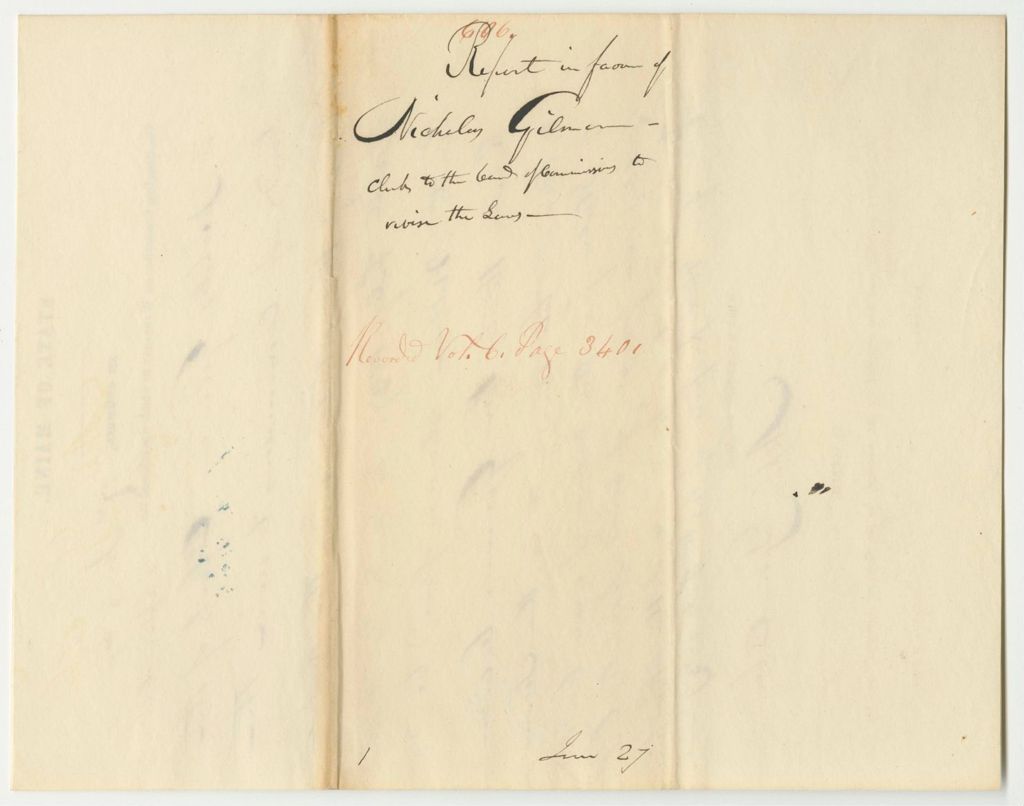 696.
Report in favor of
Nicholas Gilman –
Clerk to the board of Commissioners to
revise the Laws –
Recorded Vol. 6. Page 340.
1 June 27
STATE OF MAINE.